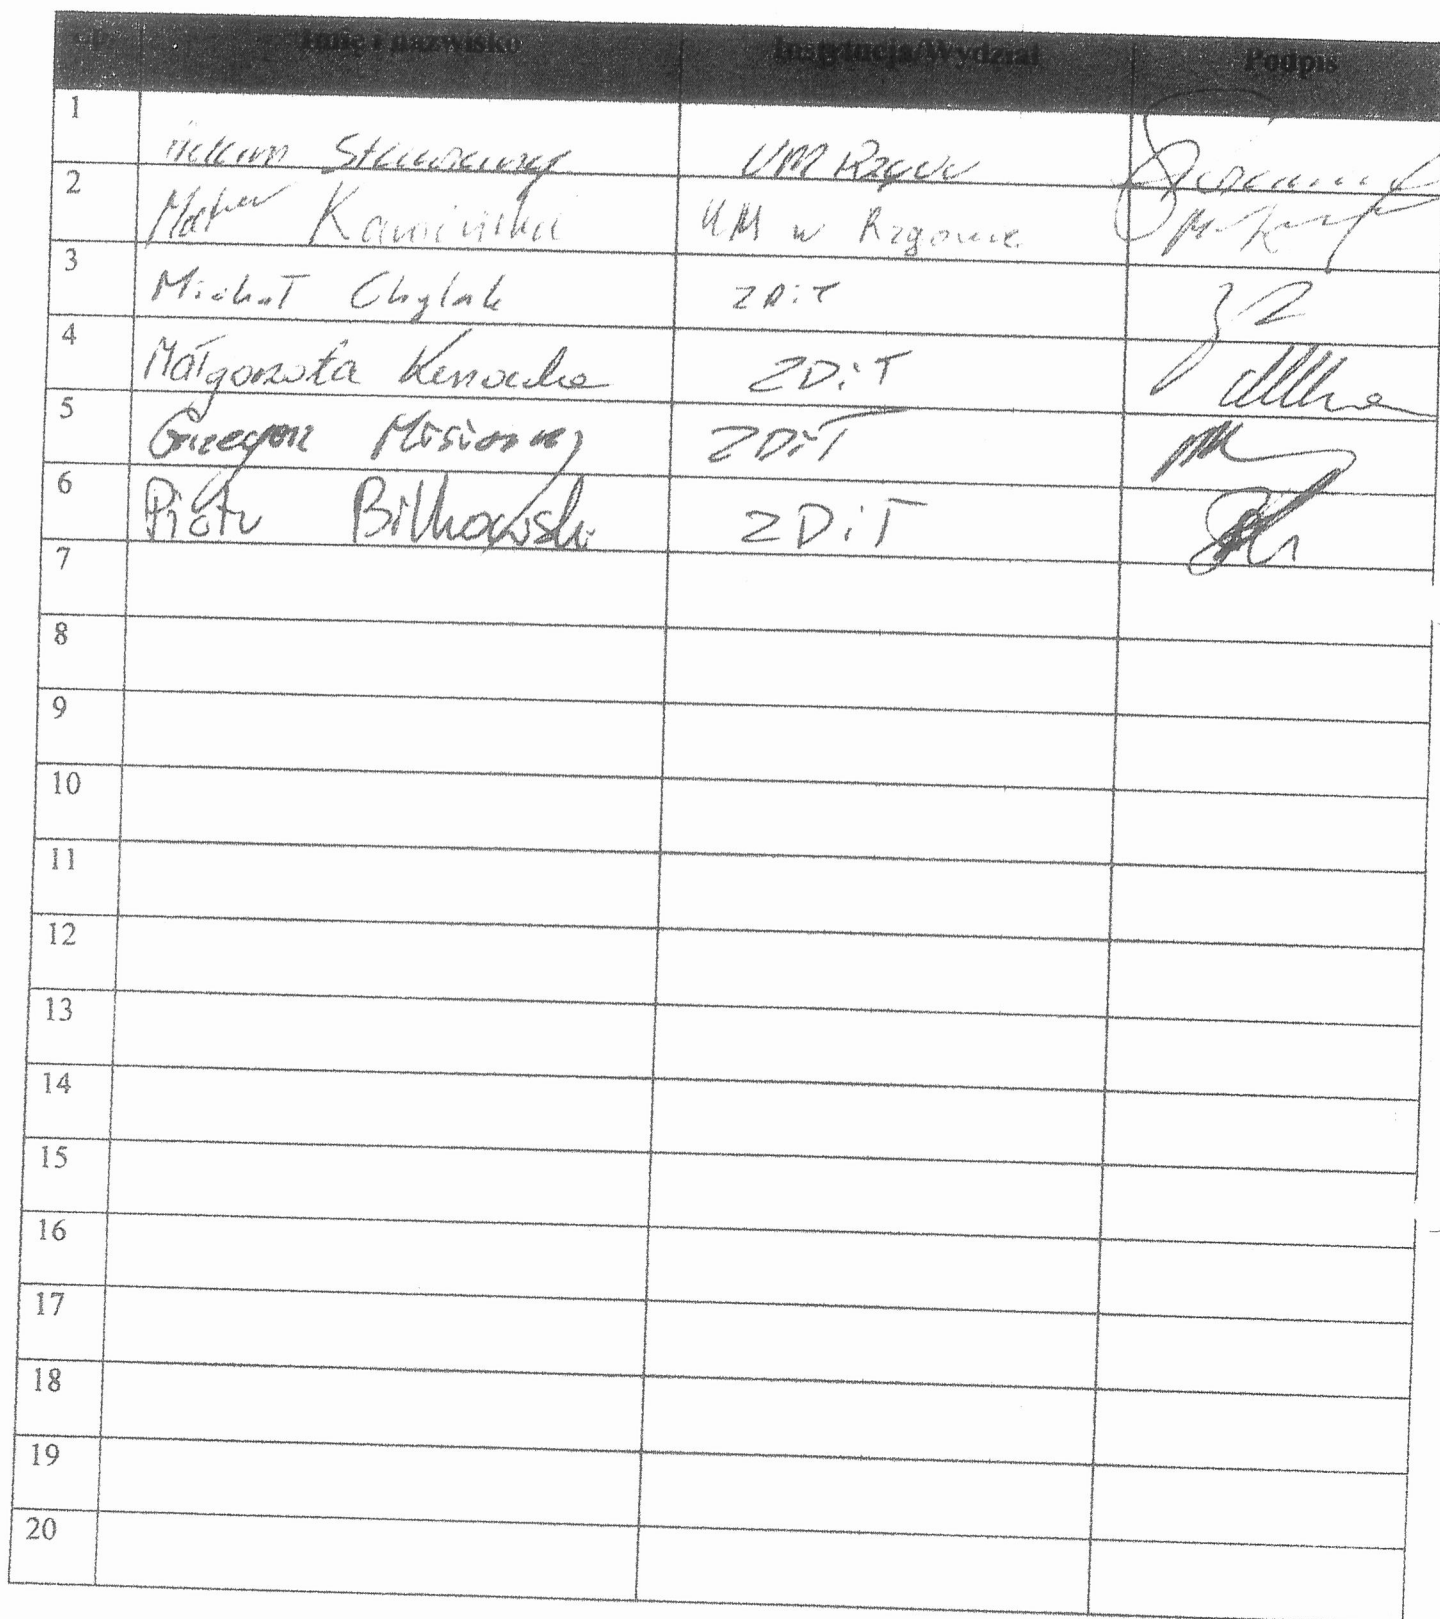 Lp. Imię i nazwisko Instytucja/Wydział Podpis
1 UM Rzgów
2 Kamińska UM w Rzgowie
3 Michał Chylak ZDiT
4 Małgorzata ZDiT
5 Grzegorz Misiorny ZDiT
6 Piotr Bilkowski ZDiT
7
8
9
10
11
12
13
14
15
16
17
18
19
20